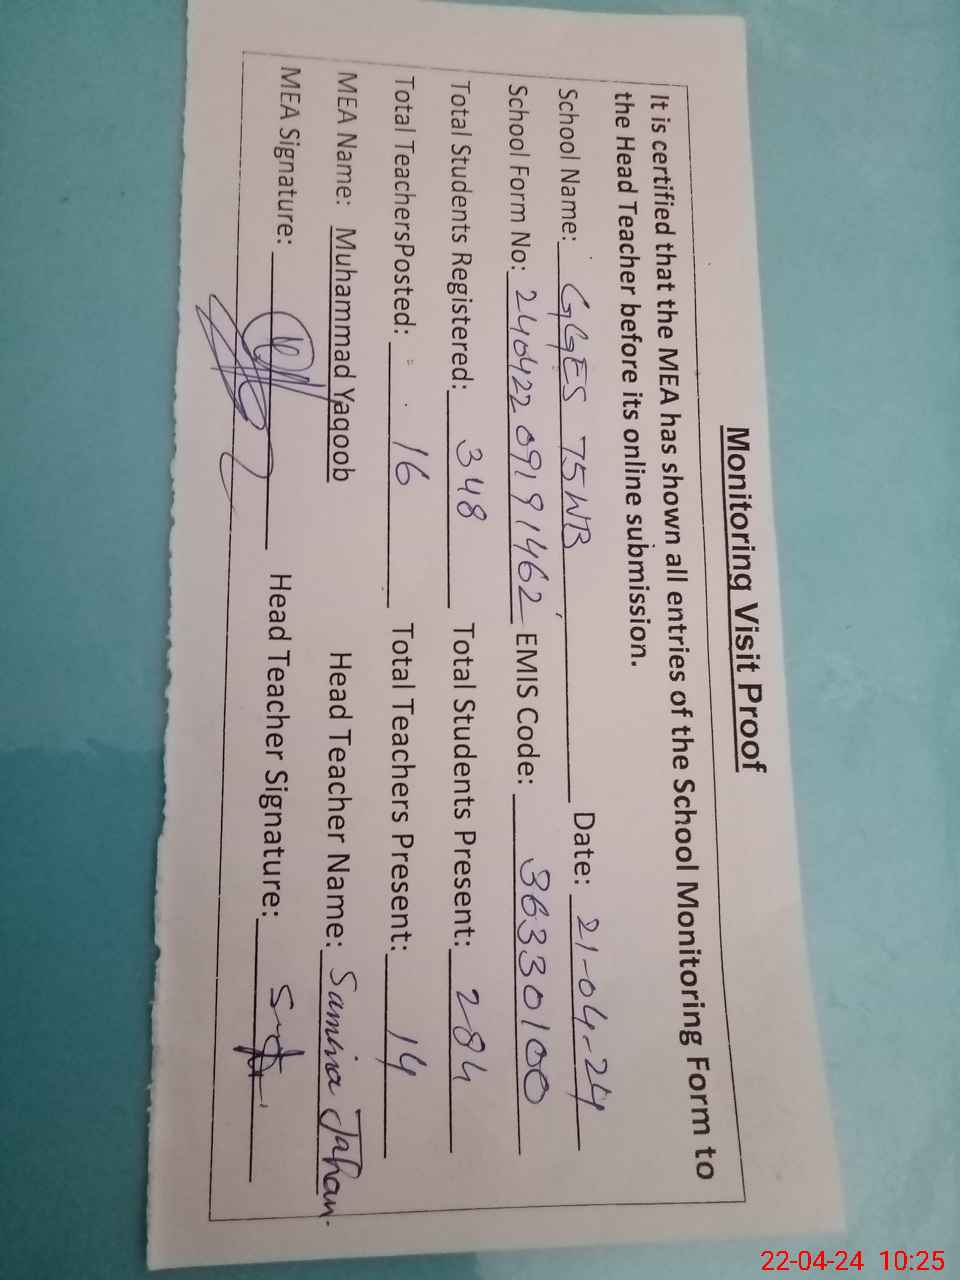 Monitoring Visit Proof
It is certified that the MEA has shown all entries of the School Monitoring Form to
the Head Teacher before its online submission.
School Name: GGES 75WB Date: 21-04-24
School Form No: 24042209191462 EMIS Code: 36330100
Total Students Registered: 348 Total Students Present: 284
Total TeachersPosted: 16 Total Teachers Present: 14
MEA Name: Muhammad Yaqoob Head Teacher Name: Samina Jahan.
MEA Signature: Head Teacher Signature:
22-04-24 10:25